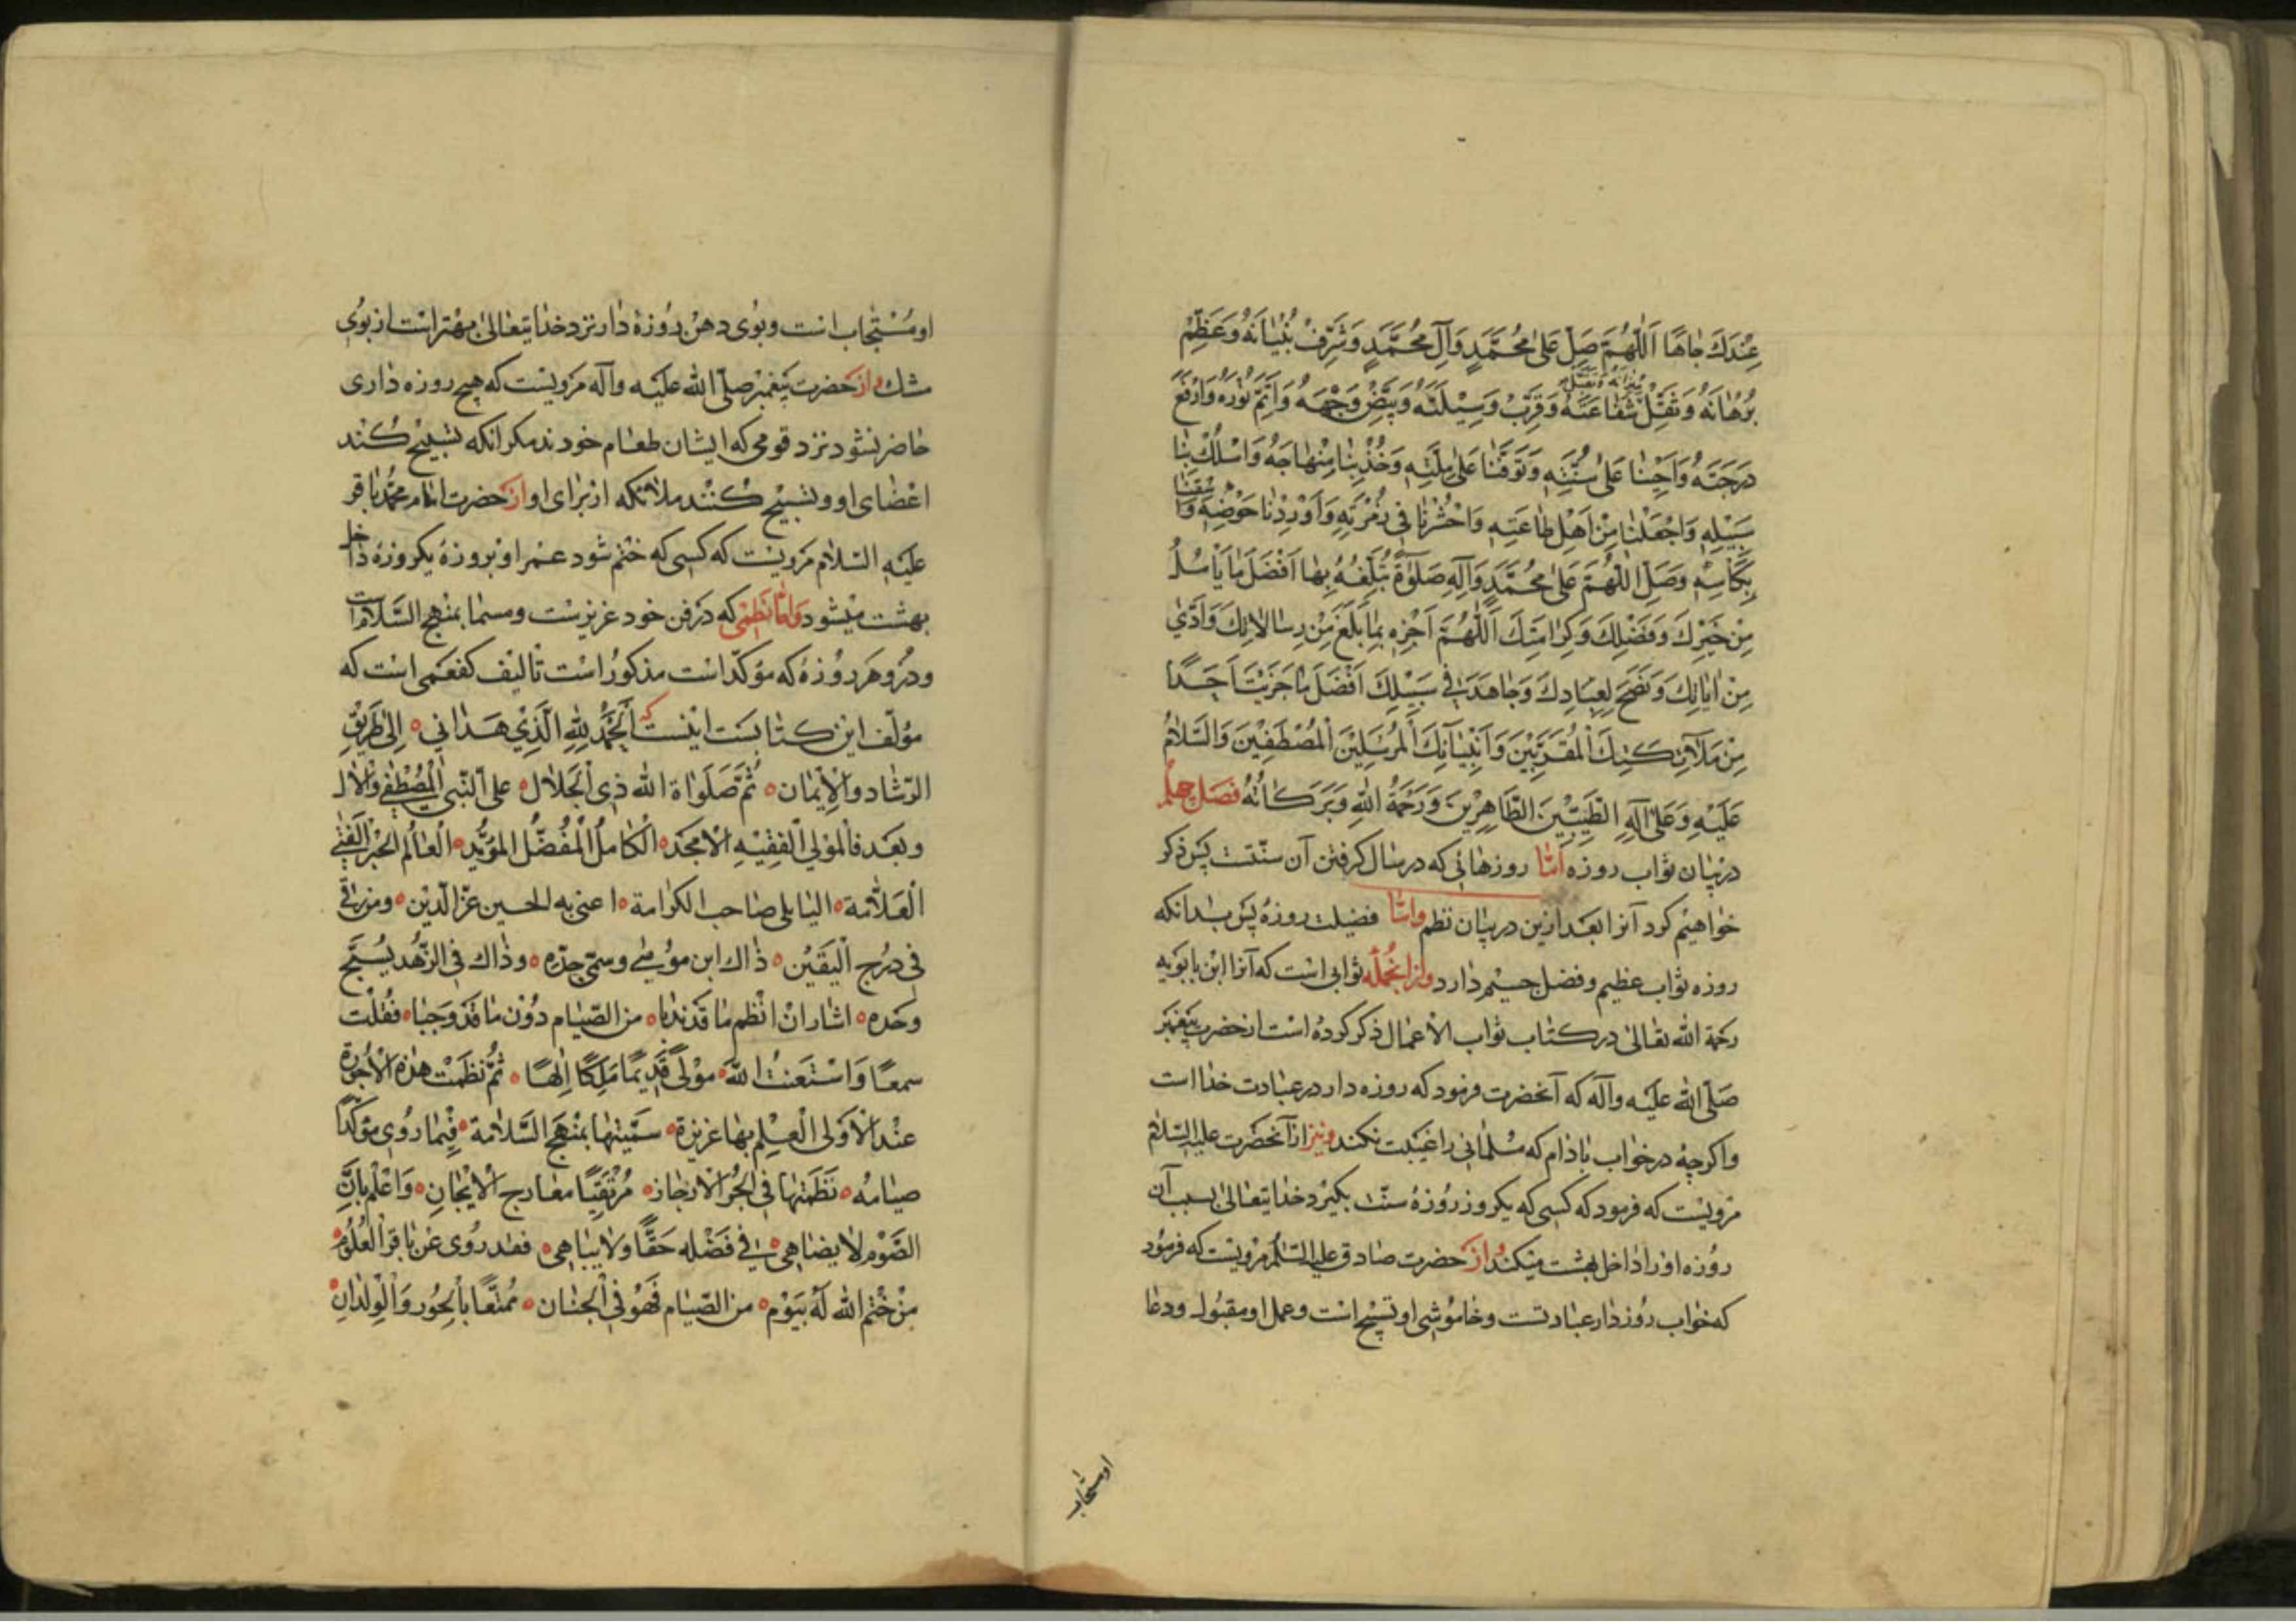 عِنْدَكَ جٰاهًا اَللّٰهُمَّ صَلِّ عَلىٰ مُحَمَّدٍ وَآلِ مُحَمَّدٍ وَشَرِّفْ بُنْيٰانَهُ وَعَظِّمْ
بُرْهٰانَهُ وَثَقِّلْ شَفٰاعَتَهُ وَقَرِّبْ وَسِيْلَتَهُ وَبَيِّضْ وَجْهَهُ وَاَتِمَّ نُوْرَهُ وَارْفَعْ
دَرَجَتَهُ وَاَحْيِنٰا عَلىٰ سُنَّتِهِ وَتَوَفَّنٰا عَلىٰ مِلَّتِهِ وَخُذْ بِنٰا مِنْهٰاجَهُ وَاسْلُكْ بِنٰا
سَبِيْلِهِ وَاجْعَلْنٰا مِنْ اَهْلِ طٰاعَتِهِ وَاحْشُرْنٰا فى زُمْرَتِهِ وَاَوْرِدْنٰا حَوْضِهِ وَاسْقِنٰا
بِكَأْسِهِ وَصَلِّ اللّٰهُمَّ عَلىٰ مُحَمَّدٍ وَآلِهِ صَلٰوةً تُبَلِّغُهُ بِهٰا اَفْضَلَ مٰا يَأْمُلُ
مِنْ خَيْرِكَ وَفَضْلِكَ وَكَرٰامَتِكَ اَللّٰهُمَّ اَجْزِهِ بِمٰا بَلَغَ مِنْ رِسٰالاٰتِكَ وَاَدّىٰ
مِنْ اٰيٰاتِكَ وَنَصَحَ لِعِبٰادِكَ وَجٰاهَدَ فى سَبِيْلِكَ اَفْضَلَ مٰا جَزَيْتَ اَحَدًا
مِنْ مَلآئِكَتِكَ الْمُقَرَّبِيْنَ وَاَنْبِيٰآئِكَ الْمُرْسَلِيْنَ الْمُصْطَفِيْنَ وَالسَّلاٰمُ
عَلَيْهِ وَعَلىٰ آلِهِ الطَّيِّبِيْنَ الطَّاهِرِيْنَ وَرَحْمَةُ اللّٰهِ وَبَرَكٰاتُهُ فصل چهلم
دربيان ثواب روزه امّا روزهائى كه در سال كرفتن آن سنّتست پس ذكر
خواهيم كرد آنرا بعد ازين دربيان نظم وامّا فضيلت روزه پس بدانكه
روزه ثواب عظيم وفضل جسيم دارد وازانجمله ثوابى است كه آنرا ابن بابويه
رحمة الله تعالىٰ در كتاب ثواب الاعمال ذكر كرده است از حضرت پيغمبر
صلّى الله عليه وآله كه آنحضرت فرمود كه روزه دار در عبادت خدا است
واكرچه در خواب بادام كه مسلمانى را غيبت نكند ونيز از آنحضرت عليه السّلام
مرويست كه فرمود كه كسى كه يكروز روزهٔ سنّت بكيرد خدايتعالىٰ بسبب آن
روزه او را داخل بهشت ميكند واز حضرت صادق عليه السّلم مرويست كه فرمود
كه خواب روزدار عبادتست وخاموشى او تسبيح است وعمل او مقبول ودعا
او مستجاب
او مُسْتَجٰاب است وبوى دهن روزه دار نزد خدايتعالىٰ بهتر است از بوى
مشك واز حضرت پيغمبر صلّى الله عليه وآله مرويست كه هيچ روزه دارى
حاضر نشود نزد قومى كه ايشان طعام خورند مكر انكه تسبيح كند
اعضاى او وتسبيح كنند ملائكه از براى او واز حضرت امام محمّد باقر
عليه السّلام مرويست كه كسى كه ختم شود عمر او بروزه يكروزه داخل
بهشت ميشود وامّا نظمى كه در فن خود عزيزست ومسما بمنهج السّلامة است
ودرو هر روزهٔ كه مؤكّد است مذكور است تأليف كفعمى است كه
مؤلّف اين كتابست اينست كه اَلْحَمْدُ لِلّٰهِ الَّذِيْ هَدٰانى اِلىٰ طَرِيْقِ
الرّشاد والايْمٰان ثُمَّ صَلَوٰاة الله ذى الْجَلاٰل على النّبى الْمُصْطَفٰى وَالاٰل
وبَعْد فالمَوْلى الْفَقِيْهِ الاَمْجَد الْكٰامِلُ الْمُفَضَّلُ المؤيَّد الْعٰالِمُ الْحَبْرُ الْفَتٰى
الْعَلاّٰمَة اليابلى صٰاحب الكرٰامة اعنى به الحسين عزّ الدّيْن ومن رقىٰ
فى دُرُج الْيَقِيْن ذٰاك ابن موسٰى وسمىّ جدّه وذٰاك فى الزّهْد يُسَبَّح
وحده اشار انْ انْظم مٰا قد ندبٰا من الصّيٰام دوْن مٰا قَدْ وَجَبٰا فقُلْت
سمعًا وَاسْتَعَنْتُ اللّٰه مولًى قَدِيْمًا مَلِكًا اِلٰهًا ثُمَّ نظَمْت هٰذه الاُجُوْزة
عنْد الاُوْلى الْعِلْم بهٰا عزيزة سَمَّيْتهٰا بمَنْهَج السَّلاٰمة فيْمٰا روى مؤكّدًا
صيٰامهُ نَظَمْتهٰا فى الْجُرِ الاَرْجٰاز مُرْتَقِيًا معٰارج الايْجٰان وَاعْلَمْ بانّ
الصَّوْم لاٰ يضٰاهى فى فَضْله حَقًّا ولاٰ يبٰاهى فقد روى عَنْ بٰاقر الْعُلُوْم
مَنْ خُتِم الله لَهُ بيَوْم من الصّيٰام فَهُوَ فى الْجنٰان مُمَتَّعًا بالْحُوْر وَالْوِلْدٰانِ